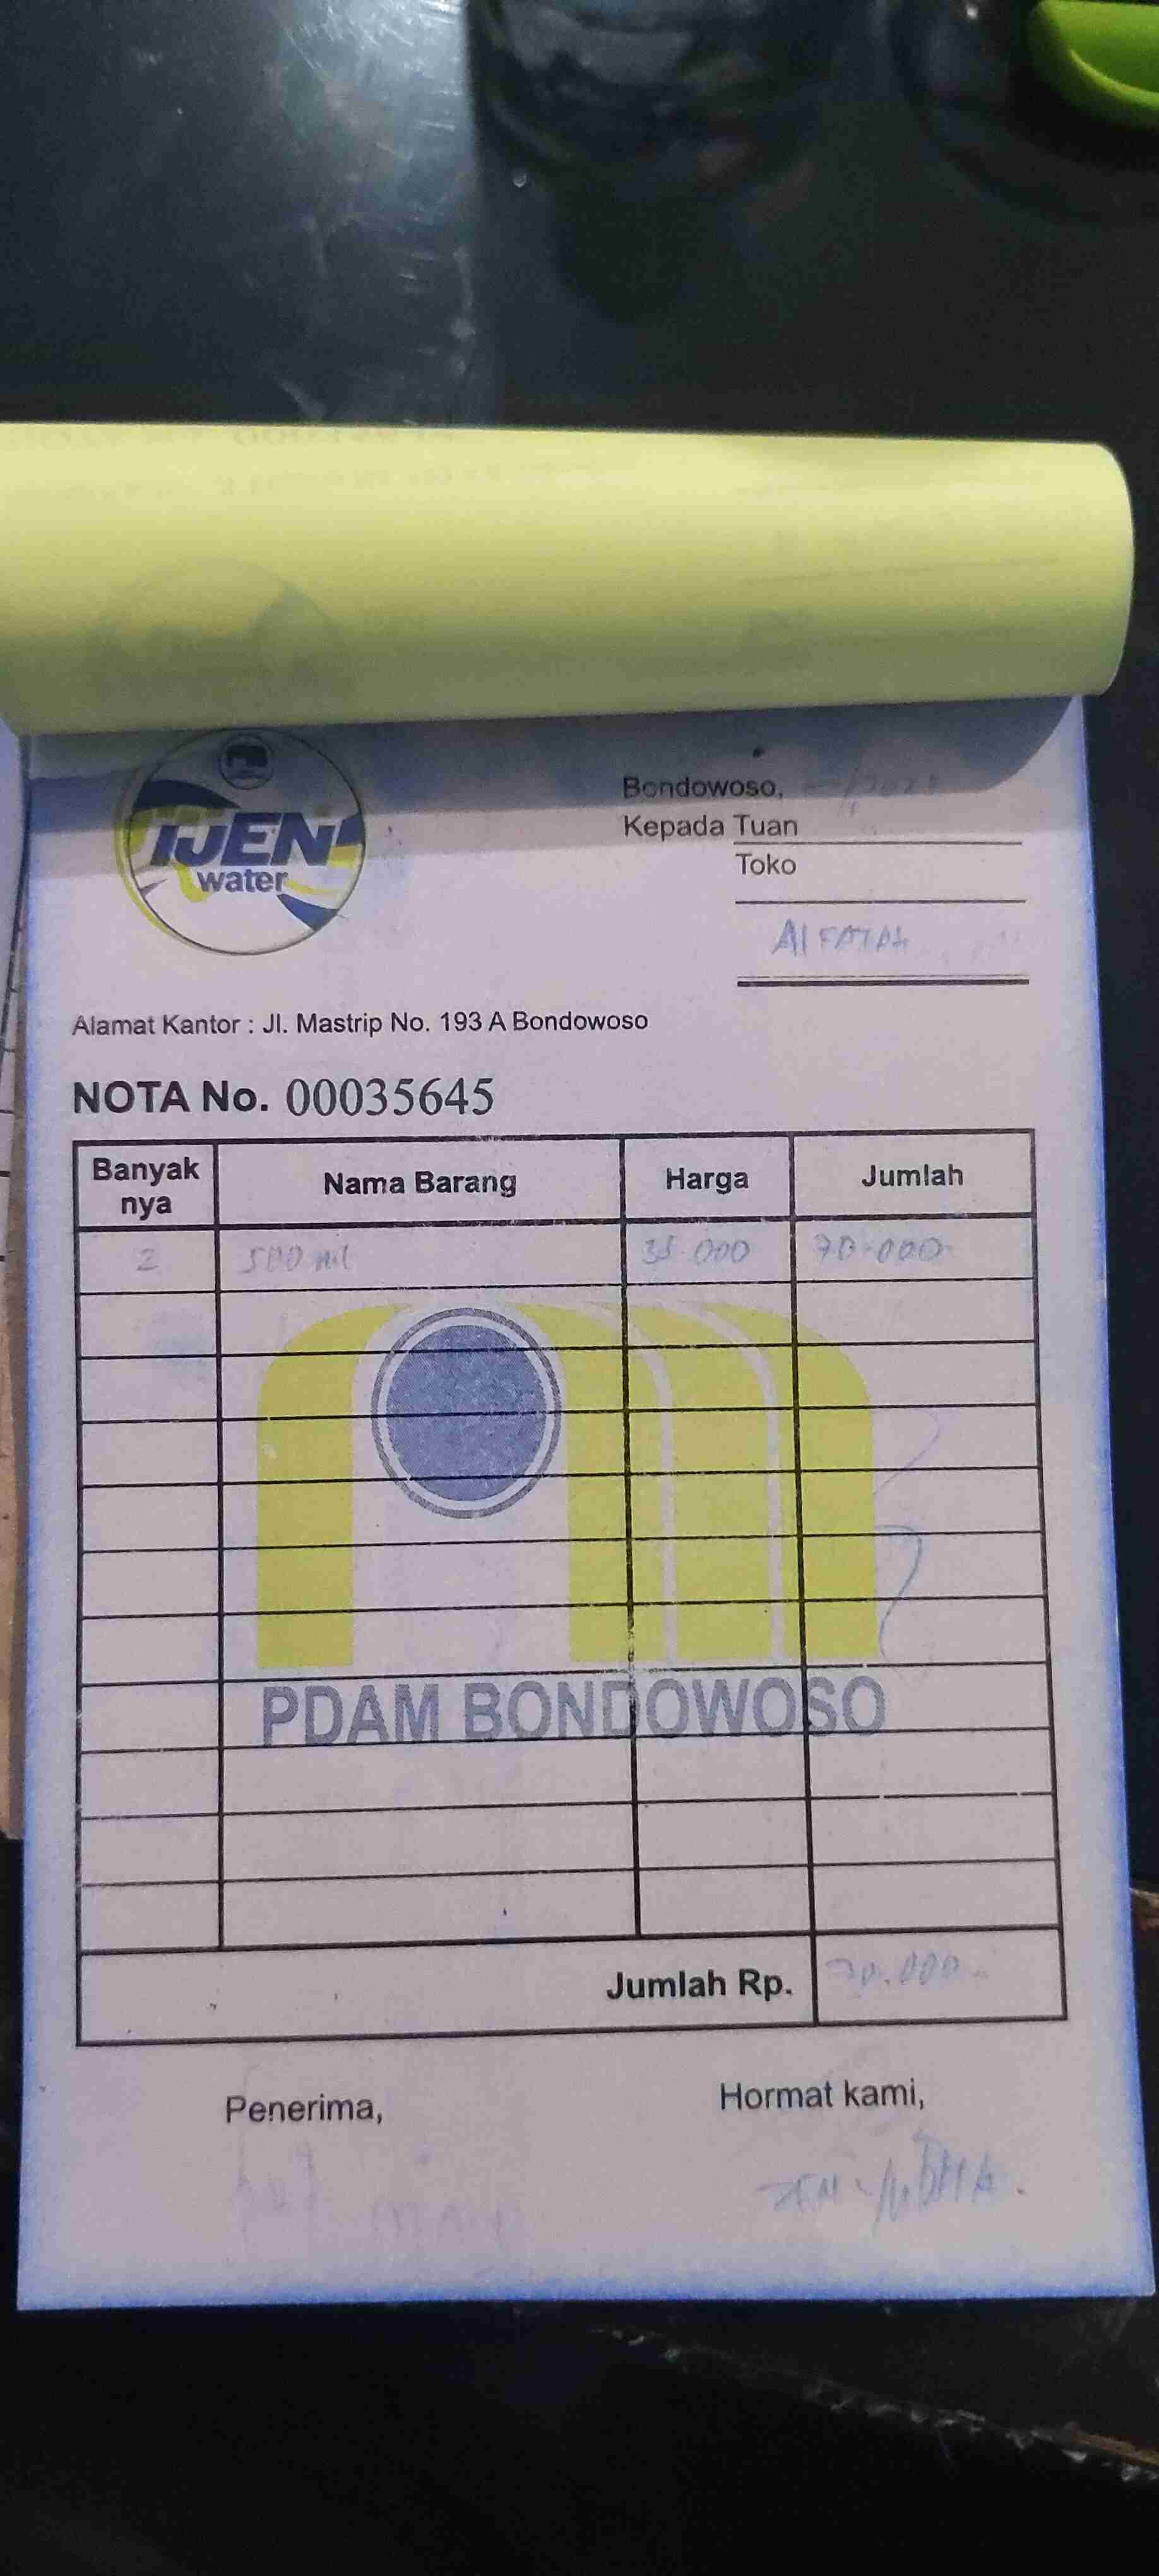 IJEN
water
Bondowoso,
Kepada Tuan
Toko
Al FATAH
Alamat Kantor : Jl. Mastrip No. 193 A Bondowoso
NOTA No. 00035645
Banyak nya Nama Barang Harga Jumlah
2 500 ml 35.000 70.000
PDAM BONDOWOSO
Jumlah Rp. 70.000
Penerima, Hormat kami,